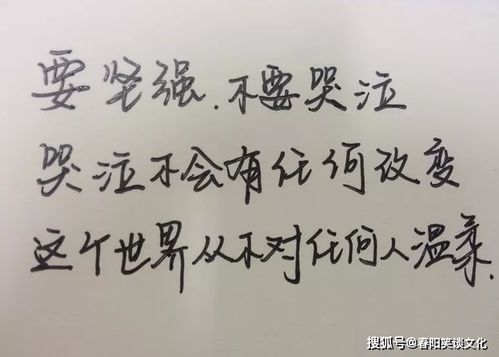 要坚强.不要哭泣
哭泣不会有任何改变
这个世界从不对任何人温柔.
搜狐号@春阳笑谈文化